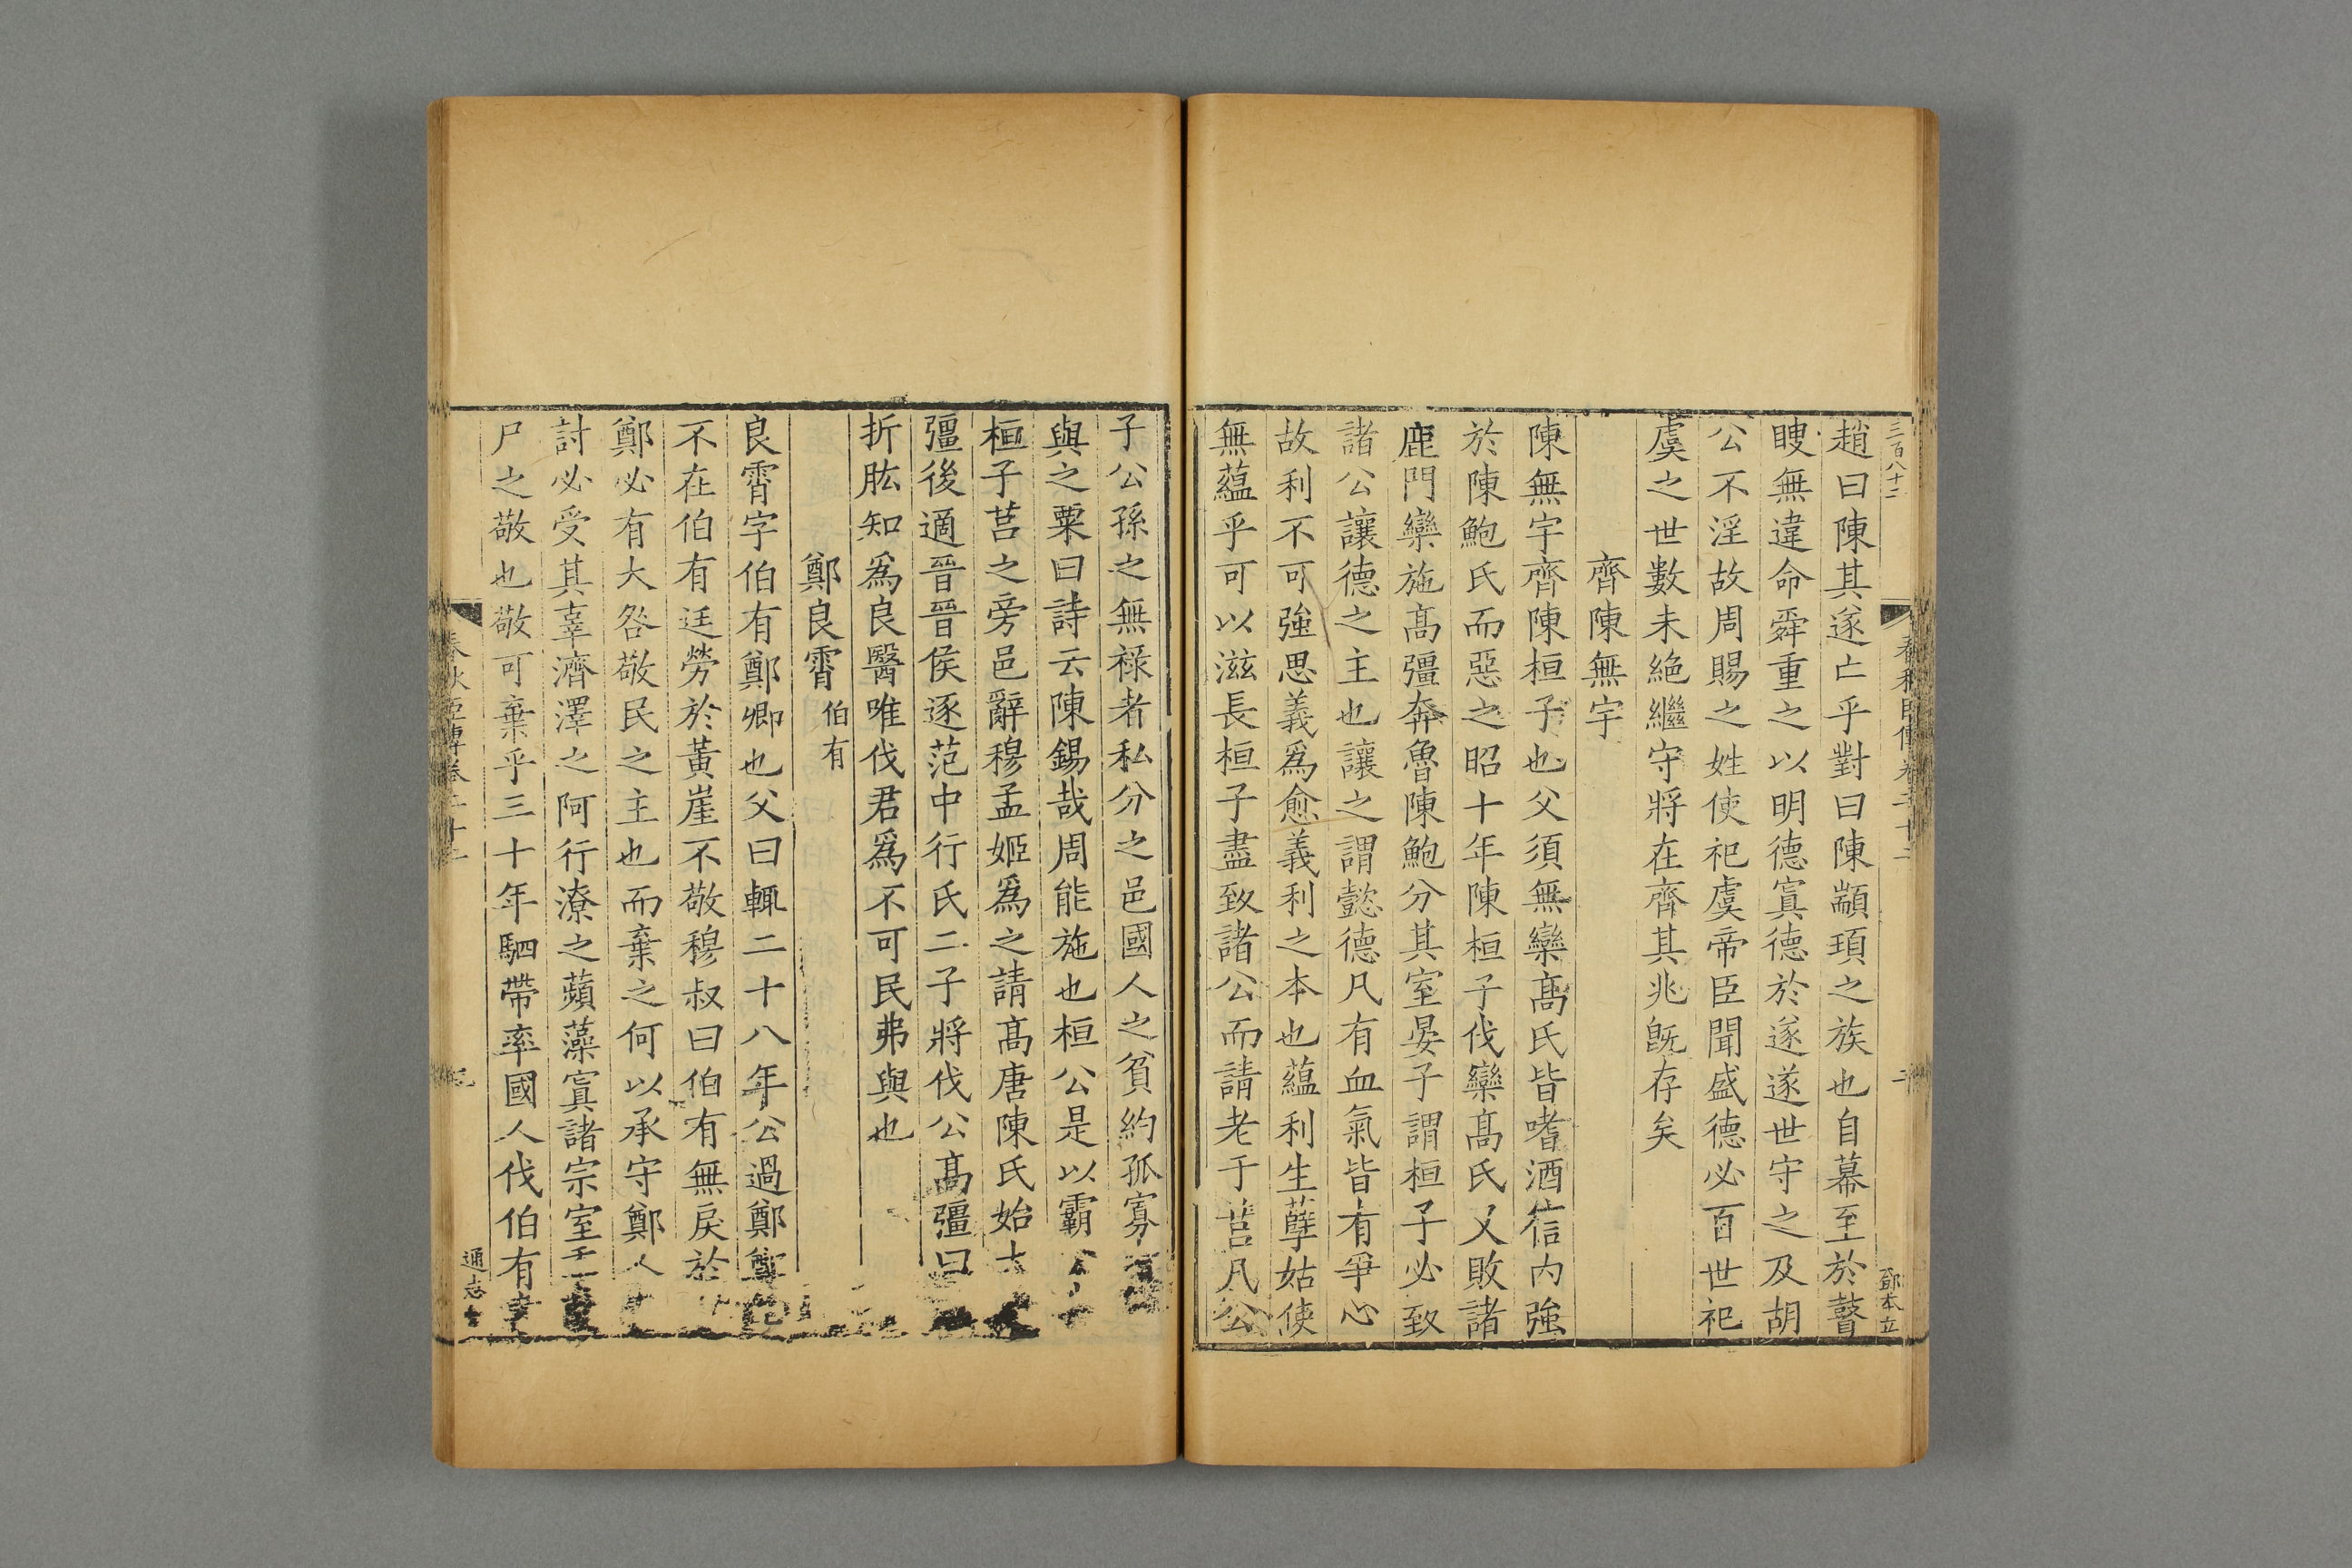 三百八十二
鄧本立
趙曰陳其遂亡乎對曰陳顓頊之族也自幕至於瞽
瞍無違命舜重之以明德寘德於遂遂世守之及胡
公不淫故周賜之姓使祀虞帝臣聞盛德必百世祀
虞之世數未絶繼守將在齊其兆旣存矣
齊陳無宇
陳無宇齊陳桓子也父須無欒髙氏皆嗜酒信内強
於陳鮑氏而惡之昭十年陳桓子伐欒髙氏又敗諸
鹿門欒施髙彊奔魯陳鮑分其室晏子謂桓子必致
諸公讓德之主也讓之謂懿德凡有血氣皆有爭心
故利不可強思義爲愈義利之本也蘊利生孽姑使
無蘊乎可以滋長桓子盡致諸公而請老于莒凡公
子公孫之無禄者私分之邑國人之貧約孤寡
與之粟曰詩云陳錫哉周能施也桓公是以霸
桓子莒之旁邑辭穆孟姬爲之請髙唐陳氏始大
彊後適晉晉侯逐范中行氏二子將伐公髙彊曰
折肱知爲良醫唯伐君爲不可民弗與也
鄭良霄 伯有
良霄字伯有鄭卿也父曰輒二十八年公過鄭鄭
不在伯有廷勞於黃崖不敬穆叔曰伯有無戾於
鄭必有大咎敬民之主也而棄之何以承守鄭人
討必受其辜濟澤之阿行潦之蘋藻寘諸宗室
尸之敬也敬可棄乎三十年駟帶率國人伐伯有
春秋臣傳卷二十二
通志